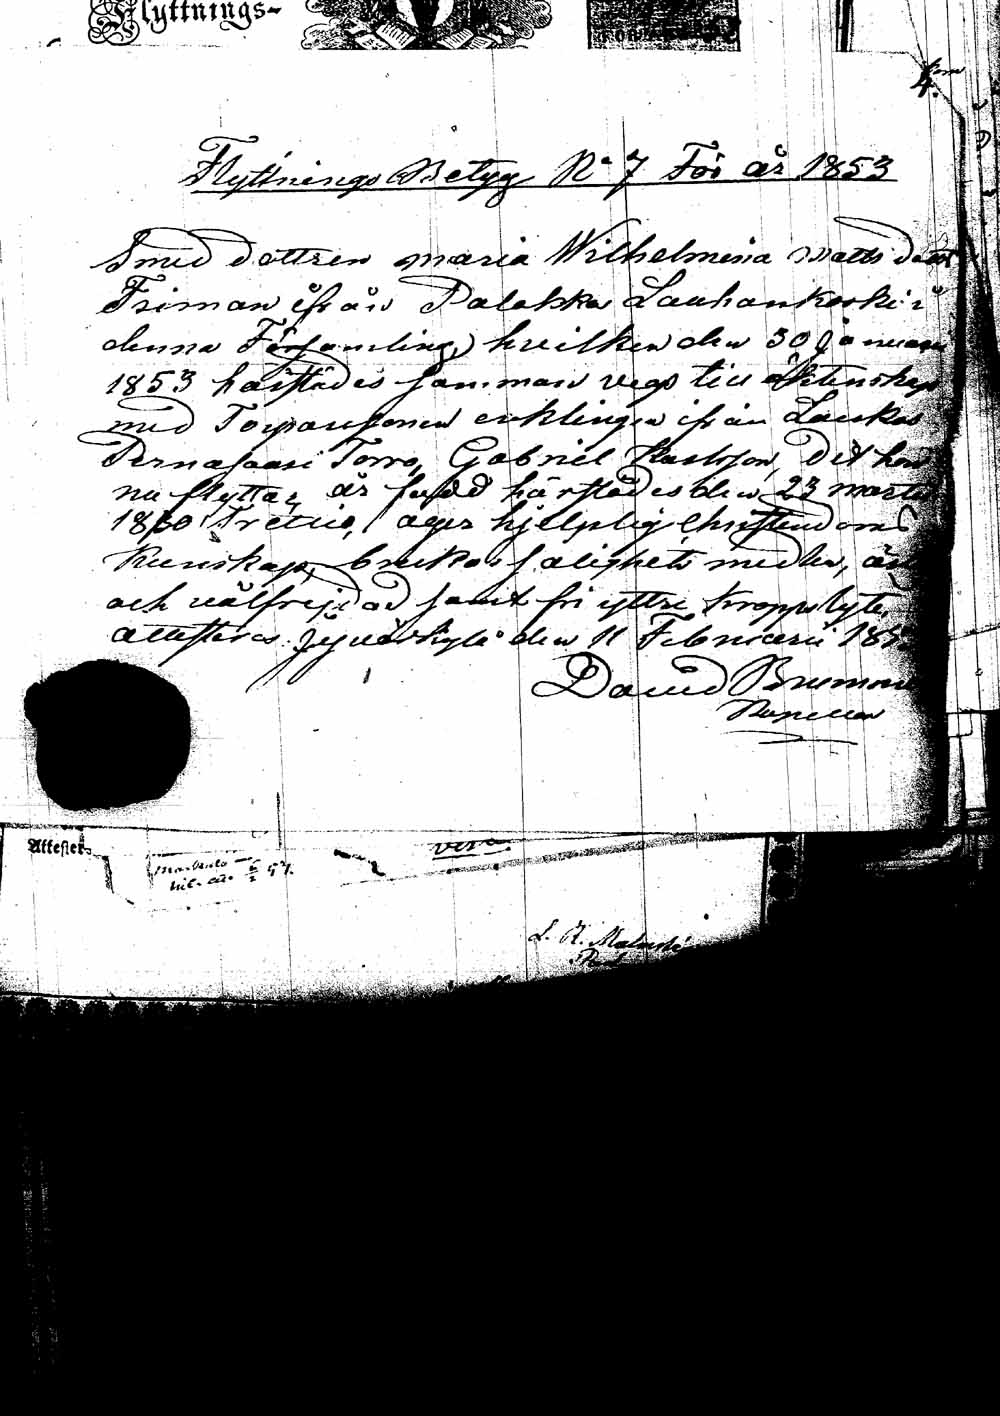 Flyttnings-
4.
Flyttnings Betyg No 7 För år 1853
Smed dottren Maria Wilhelmina Matts dott
Friman ifrån Palokka Lauhankoski i
denna Församling, hvilken den 30 Januari
1853 härstädes samman vegs till Äktenskap
med Torparesonen enklingen ifrån Laukas
Pernasaari Torro, Gabriel Karlsson, dit hon
nu flyttar, är född härstädes den 23 Martii
1830 Tretio, äger hjelplig Christendoms
kunskap, brukar salighets medlen, är
och välfrejdad samt fri yttre kropps lyte,
attesteras. Jyväskylä den 11 Februarii 185
David
Attester
L. H.